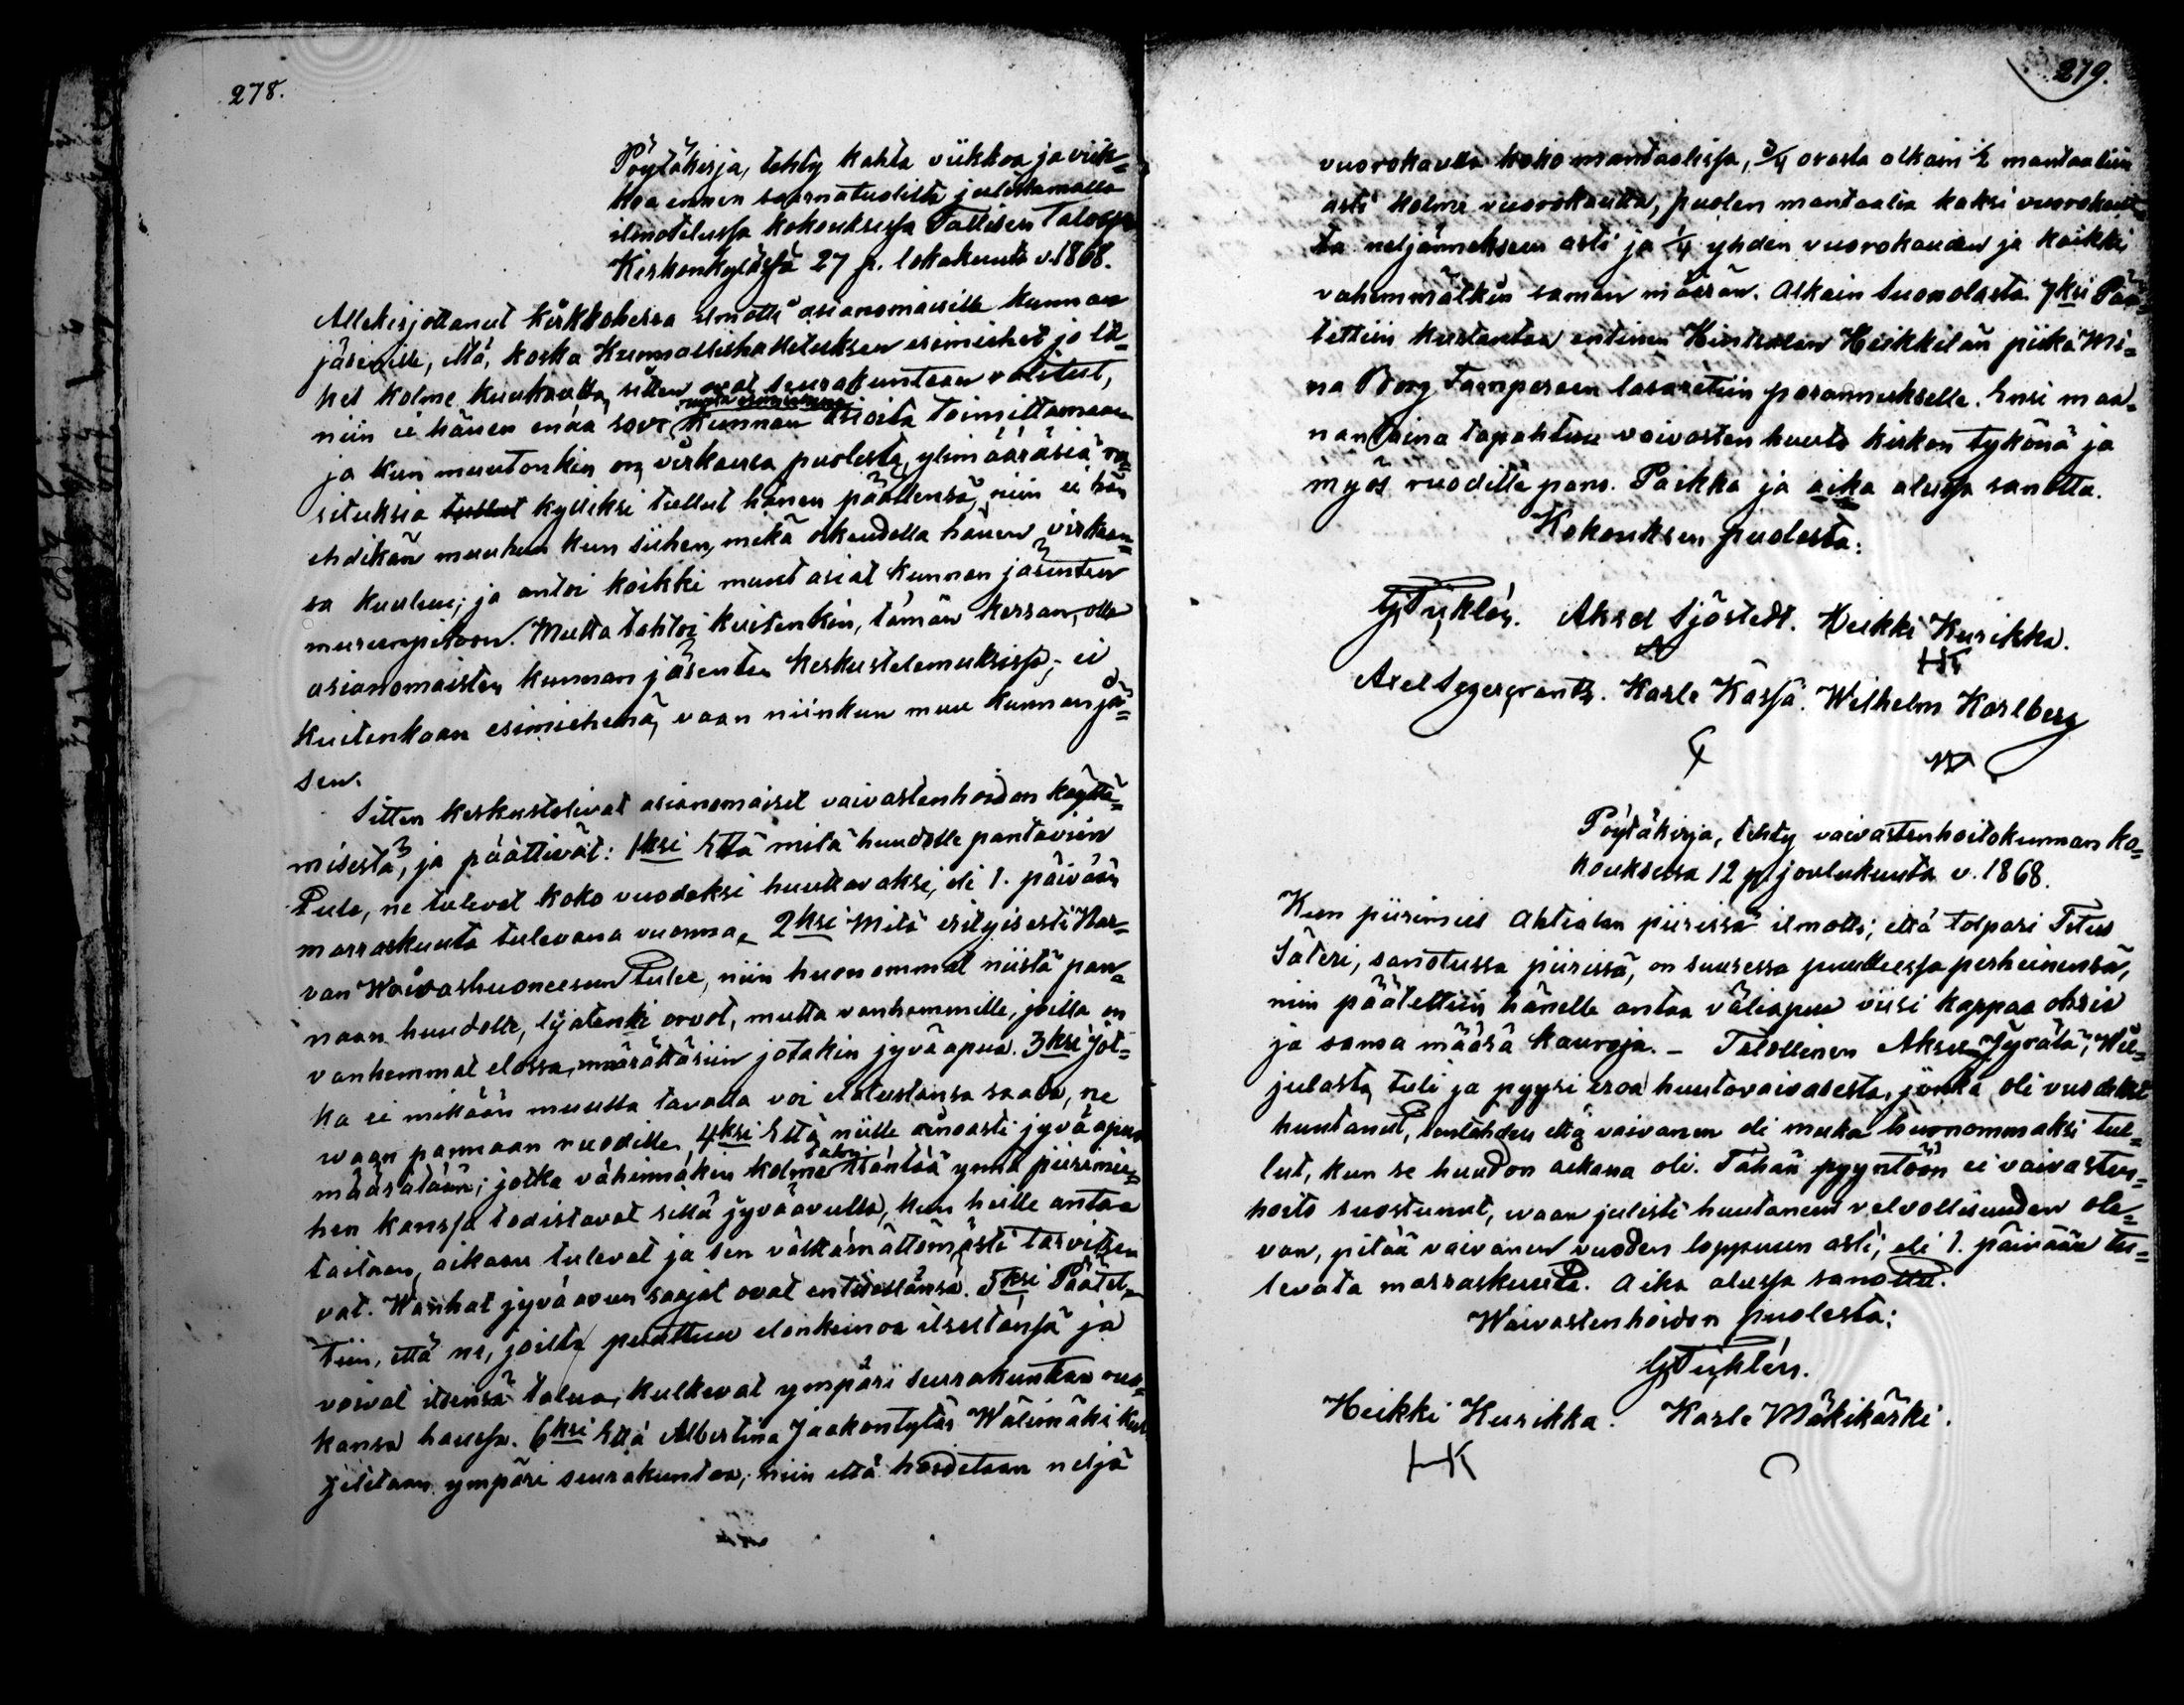 278.
Pöytäkirja, tehty kahta viikkoa ja viik=
koa ennen saarnatuolilta julistamalla
ilmotelussa kokouksessa Tallisen Talossa
Kirkonkylässä 27 p. lokakuuta v. 1868.
Allekirjottanut kirkkoherra ilmotti asianomaisille kunnan
jäsenille, että, koska Kunnallishallituksen esimiehet jo lä=
hes kolme kuukautta sitten ovat seurakuntaan valitut,
niin ei hänen enää sovi kunnan asioita toimittamaan
ja kun muutonkin on virkansa puolesta ylimääräsiä ra=
situksia tullut kylliksi tullut hänen päällensä, niin ei hän
ehdikän muuhun kun siihen, mikä oikeudella hänen virkaan=
sa kuuluu; ja antoi kaikki muut asiat kunnan jäsenten
murunpitoon. Mutta tahtoi kuitenkin, tämän kerran, olla
asianomaisten kunnan jäsenten keskustelemuksissa; ei
kuitenkaan esimiehenä, vaan niinkun muu kunnan jä=
sen.
Sitten keskustelivat asianomaiset vaivastenhoidon käyttä=
misestä, ja päättivät: 1ksi Että mitä huudolle pantaviin
tule, ne tulevat koko vuodeksi huuttavaksi, eli 1. päivään
marraskuuta tulevana vuonna. 2ksi Mitä erityisesti Kar=
van Waivashuoneesen tulee, niin huonommat niistä pan=
naan huudolle, lijatenki orvot, mutta vanhemmille, joilla on
vanhemmat elossa, määrättäsiin jotakin jyväapua. 3ksi Jot=
ka ei mikään muulla tavalla voi elatustansa saada, ne
waan pannaan ruodille, 4ksi Että niille ainoasti jyväapua
määrätään; jotka vähinnäkin kolme talon isäntää ynnä piirimie=
hen kanssa todistavat sillä jyväavulla, kun heille antaa
taitaan, aikaan tulevat ja sen välkämättömästi tarvitse=
vat. Wanhat jyväavun saajat ovat entisellänsä. 5ksi Päätet=
tiin, että ne, joilta puuttuu elonkeinoa itsestänsä ja
voivat itsensä talua, kulkevat ympäri seurakuntaa ruo=
kansa haussa. 6ksi Että Albertina Jaakontytär Wälimäki kul=
jetetaan ympäri seurakuntaa; niin että hoidetaan neljä
279.
vuorokautta koko mantaalissa, 3/4 osasta alkain 1/2 mantaaliin
asti kolme vuorokautta, puolen mantaalia kaksi vuorokaut=
ta neljännekseen asti ja 1/4 yhden vuorokauden ja kaikki
vahemmätkin saman määrän. Alkain Suosolasta. 7ksi Pää=
tettiin kustantaa entinen Kintsalan Heikkilän piika Mi=
na Borg Tampereen lasaretiin parannukselle. Ensi maa=
nantaina tapahtuu vaivasten huuto kirkon tykönä ja
myös ruodille pano. Paikka ja aika alussa sanottu.
Kokouksen puolesta:
GJTychlén. Aksel Sjöstedt. Heikki Kurikka.
HK
Axel Segercrantz. Karle Kässä. Wilhelm Karlberg
Pöytäkirja, tehty vaivastenhoitokunnan ko=
kouksessa 12 p. joulukuuta v. 1868.
Kun piirimies Ahtialan piirissä ilmotti; että torpari Titus
Säteri, sanotussa piirissä, on suuressa puutteessa perheinensä,
niin päätettiin hänelle antaa väliapua viisi kappaa ohria
ja sama määrä kauroja. - Talollinen Akseli Jyrälä, Wil=
julasta, tuli ja pyysi eroa huutovaivasesta, jonka oli vuodeksi
huutanut, senlähden että vaivanen oli muka huonommaksi tul=
lut, kun se huudon aikana oli. Tähän pyyntöön ei vaivasten=
hoito suostunut, waan julisti huutaneen velvollisuuden ole=
van, pitää vaivanen vuoden loppuun asti; eli 1. päivään tu=
levata marraskuuta. Aika alussa sanottu.
Waivastenhoidon puolesta:
GJTychlén.
Heikki Kurikka. Karle Mäkikärki.
HK